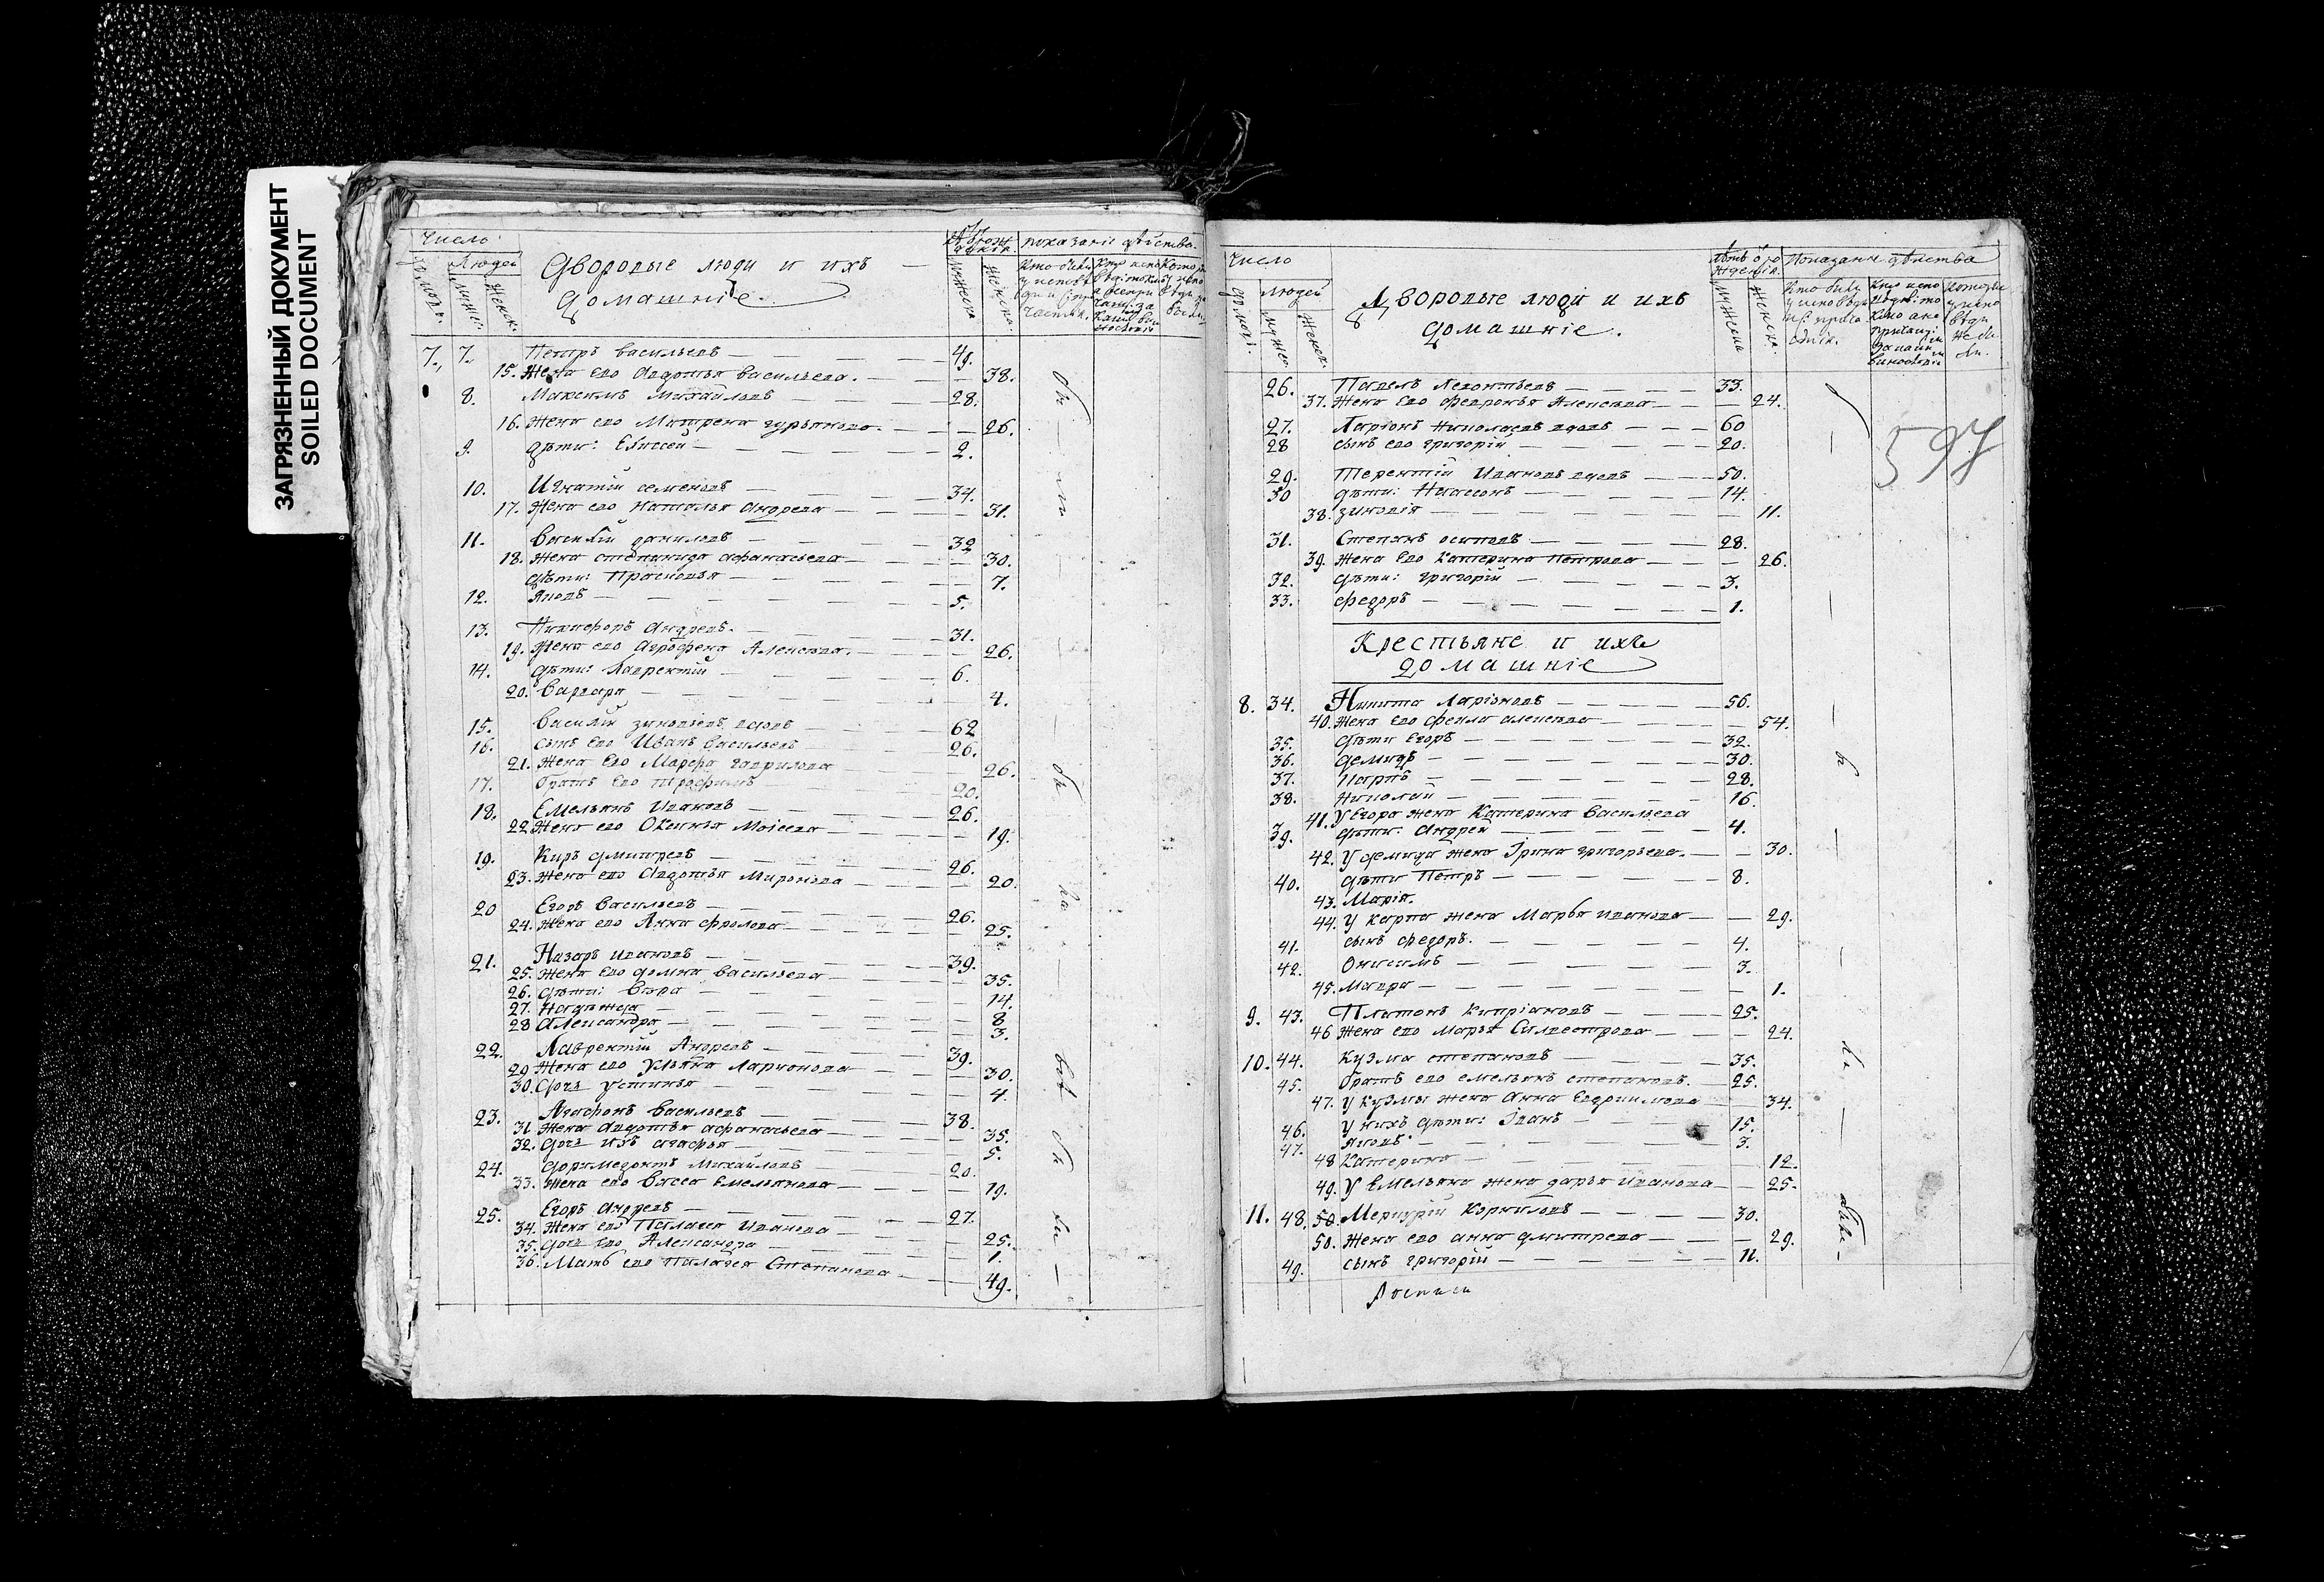 ЗАГРЯЗНЕННЫЙ ДОКУМЕНТ
SOILED DOCUMENT
Число
Людей
Дворовые люди и ихъ
домашніе.
показаніе действа.
7. 7. Петръ Васильевъ 49.
15. Жена его Авдотья Васильева. 38.
8. Максимъ Михайловъ 28.
16. Жена его Матрена Гурьянова. 26.
9. дѣти: Елисей 2.
10. Игнатій Семеновъ 34.
17. Жена его Наталья Андрева 31.
11. Василій Данилевъ 32
18. Жена Степанида Афанасьева 30.
дѣти: Прасковья 7.
12. Яковъ 5.
13. Никифоръ Андревъ. 31.
19. Жена его Агрофена Алексева. 26.
14. дѣти: Лаврентій 6.
20. Варвара 4.
15. Василій Зиновьевъ вдовъ 62
16. сынъ его Иванъ Васильевъ 26.
21. Жена его Марфа Гаврилова 26.
17. братъ его Трофимъ 20.
18. Емельянъ Ивановъ 26.
22. Жена его Оксинья Моісева 19.
19. Киръ Дмитревъ 26.
23. Жена его Авдотья Миронова 20.
20 Егоръ Васильевъ 26.
24. Жена его Анна Фролова 25.
21. Назаръ Ивановъ 39.
25. Жена его Домна Васильева 35.
26. дѣти: Вѣра 14.
27. Надѣжда 8.
28 Александра 3.
22. Лаврентій Андревъ 39.
29 Жена его Ульяна Ларионова 30.
30. Дочь Устинья 4.
23. Агафонъ Васильевъ 38.
31 Жена Авдотья Афанасьева 35.
32. дочь ихъ Агафья 5.
24. Дормедонтъ Михайловъ 20.
33. Жена его Васса Емельянова 19.
25. Егоръ Андревъ 27.
34. Жена его Палагея Иванова 25.
35. дочь его Александра 1.
36. Мать его Палагея Степанова 49.
Число
Людей
Дворовые люди и ихъ
домашніе.
Показаніе действа
597
26. Павелъ Левонтьевъ 33.
37. Жена его Февронья Алексева 24.
27. Ларіонъ Николаевъ вдовъ 60
28 сынъ его Григорій 20.
29. Терентій Ивановъ вдовъ 50.
30 дѣти: Никасонъ 14.
38. Зиновія 11.
31. Степанъ Осиповъ 28.
39. Жена его Катерина Петрова 26.
32. дѣти: Григорій 3.
33. Федоръ 1.
Крестьяне и ихъ
домашніе
8. 34. Никита Ларіоновъ 56.
40. Жена его Фекла Алексева 54.
35. дѣти Егоръ 32.
36. Демидъ 30.
37. Карпъ 28.
38. Николай 16.
41. У Егора жена Катерина Васильева
39. дѣти: Андрей 4.
42. У Демида жена Ірина Григорьева. 30.
40. дѣти Петръ 8.
43. Марія.
44. У Карпа жена Марья Иванова 29.
41. сынъ Федоръ. 4.
42. Онисимъ 3.
45. Мавра 1.
9. 43. Платонъ Кипріановъ 25.
46 Жена его Марья Силвестрова 24.
10. 44. Кузма Степановъ 35.
45. братъ его Емельянъ Степановъ. 25.
47. У Кузмы жена Анна Евдокимова 34.
46. У нихъ дѣти: Іванъ 15.
47. Яковъ 3.
48 Катерина 12.
49. У Емельяна жена Дарья Иванова 25.
11. 48. 50. Меркурій Корниловъ 30.
50. Жена его Анна Дмитрева 29.
49. сынъ Григорій 11.